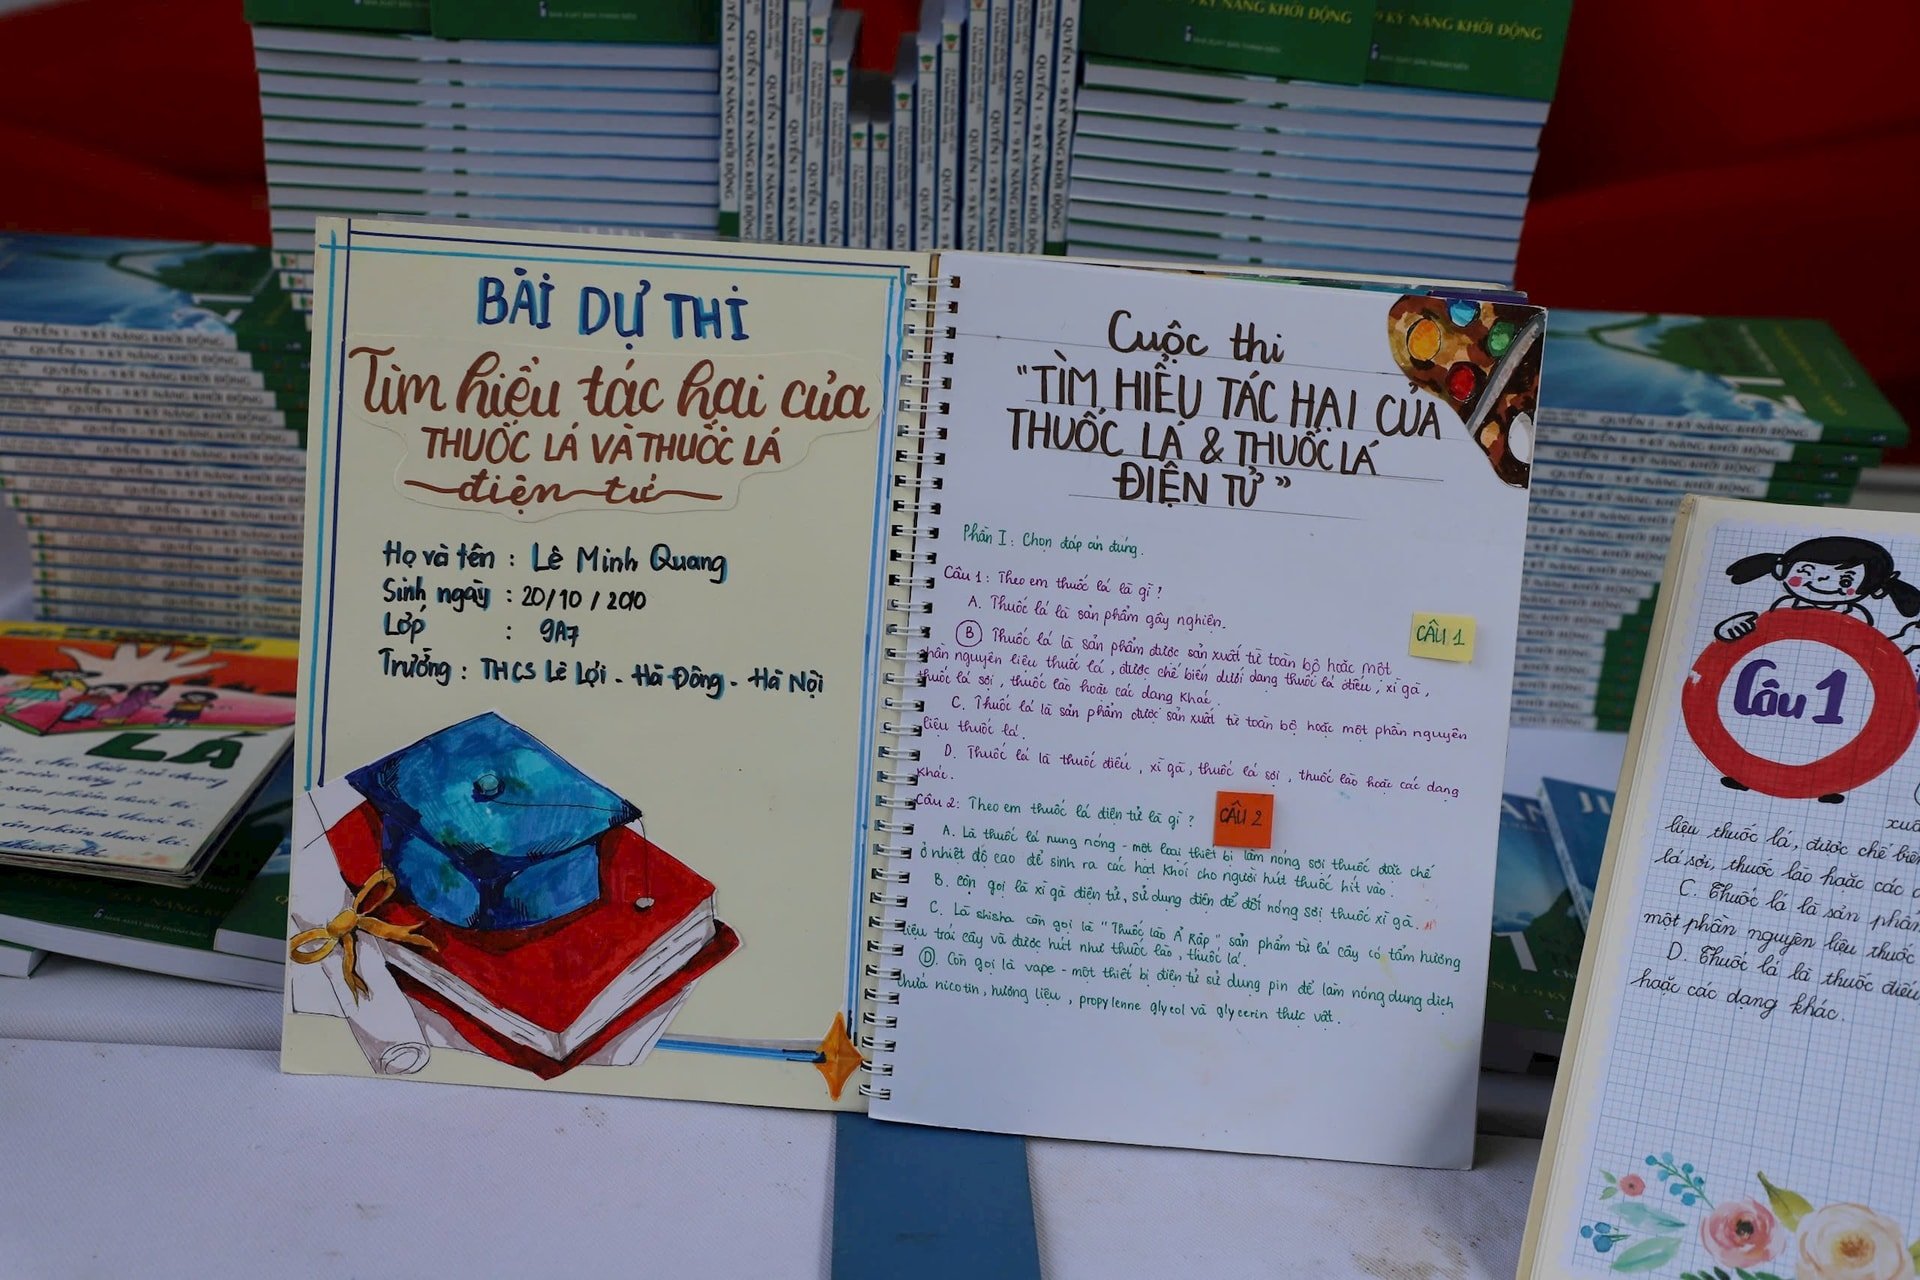 9 KỸ NĂNG KHỞI ĐỘNG
9 KỸ NĂNG KHỞI ĐỘNG
NHÀ XUẤT BẢN THANH NIÊN
QUYỂN 1 - 9 KỸ NĂNG KHỞI ĐỘNG
BÀI DỰ THI
Tìm hiểu tác hại của
THUỐC LÁ VÀ THUỐC LÁ
điện tử
Họ và tên : Lê Minh Quang
Sinh ngày : 20/10/2010
Lớp : 9A7
Trường : THCS Lê Lợi - Hà Đông - Hà Nội
Cuộc thi
"TÌM HIỂU TÁC HẠI CỦA
THUỐC LÁ & THUỐC LÁ
ĐIỆN TỬ"
Phần I: Chọn đáp án đúng.
Câu 1: Theo em thuốc lá là gì?
A. Thuốc lá là sản phẩm gây nghiện.
CÂU 1
B Thuốc lá là sản phẩm được sản xuất từ toàn bộ hoặc một
phần nguyên liệu thuốc lá, được chế biến dưới dạng thuốc lá điếu, xì gà,
thuốc lá sợi, thuốc lào hoặc các dạng khác.
C. Thuốc lá là sản phẩm được sản xuất từ toàn bộ hoặc một phần nguyên
liệu thuốc lá.
D. Thuốc lá là thuốc điếu, xì gà, thuốc lá sợi, thuốc lào hoặc các dạng
khác.
Câu 2: Theo em thuốc lá điện tử là gì?
CÂU 2
A. Là thuốc lá nung nóng - một loại thiết bị làm nóng sợi thuốc được chế
ở nhiệt độ cao để sinh ra các hạt khói cho người hút thuốc hít vào.
B. Còn gọi là xì gà điện tử, sử dụng điện để đốt nóng sợi thuốc xì gà.
C. Là shisha còn gọi là "Thuốc lào Ả Rập" sản phẩm từ lá cây có tẩm hương
liệu trái cây và được hút như thuốc lào, thuốc lá.
D. Còn gọi là vape - một thiết bị điện tử sử dụng pin để làm nóng dung dịch
chứa nicotin, hương liệu, propylenne glycol và glycerin thực vật.
LÁ
Câu 1
liệu thuốc lá, được chế biến
lá sợi, thuốc lào hoặc các
C. Thuốc lá là sản phẩm
một phần nguyên liệu thuốc
D. Thuốc lá là thuốc điếu
hoặc các dạng khác.